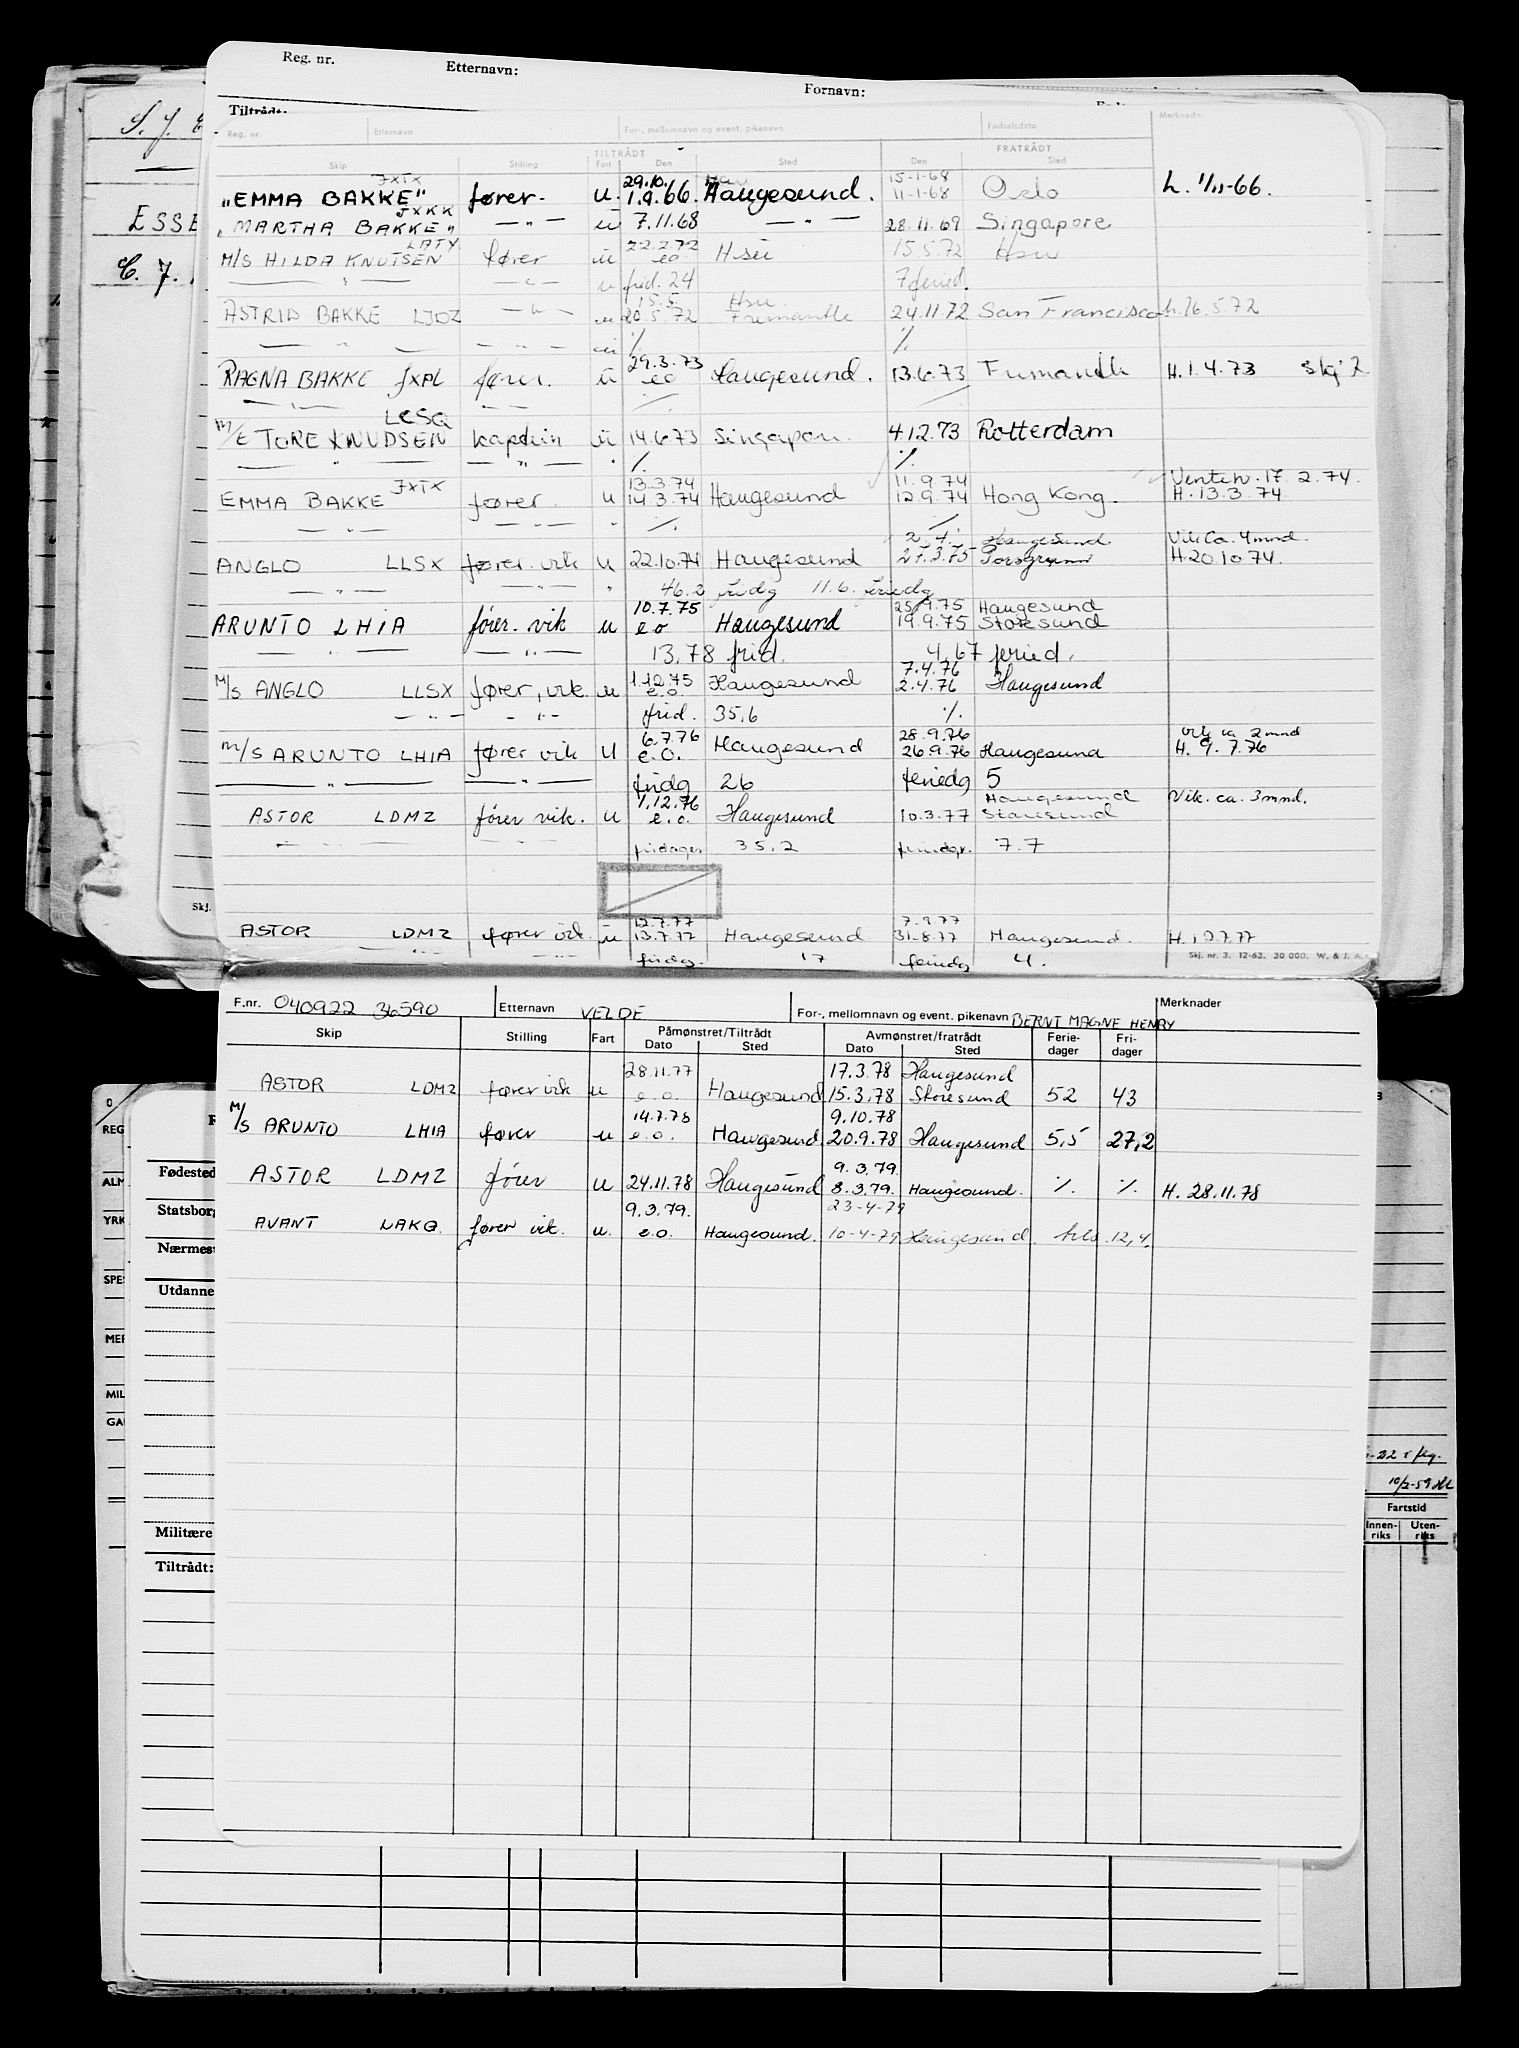 Reg. nr. Etternavn: Fornavn:
Tiltrådt:
Reg. nr. Etternavn For-, mellomnavn og event. pikenavn Fødselsdato Merknader
TILTRÅDT FRATRÅDT
Skip Stilling Fart Den Sted Den Sted
JXTX 29.10. 15-1-68
"EMMA BAKKE" fører. u. 1.9.66. Haugesund. 11-1-68 Oslo L. 1/11-66.
JXKK
"MARTHA BAKKE" — " — u 7.11.68 — " — 28.11.69 Singapore
LATY 22.2.72
M/S HILDA KNUTSEN fører u eo 15.5.72
— " — — " — u frid. 24 7 feried.
15.5.
ASTRID BAKKE LJOZ — " — u 20.5.72 Fremantle 24.11.72 San Francisco h. 16.5.72
— " — — " — % %
29.3.73
RAGNA BAKKE JXPL fører. u eo Haugesund. 13.6.73 H. 1.4.73
— " — — " — % %
LCSQ
M/S TORE KNUDSEN kaptein u 14.6.73 Singapore. 4.12.73 Rotterdam
— " — — " — " % %
JXTX 13.3.74 11.9.74 Ventew. 17.2.74.
EMMA BAKKE fører u 14.3.74 Haugesund 12.9.74 Hong Kong. H. 13.3.74.
— " — — " — % %
2.4. Haugesund Vik Ca. 4 mnd
ANGLO LLSX fører. vik u 22.10.74 Haugesund 27.3.75 Porsgrunn H. 20.10.74.
— " — " " 46.2 fridg 11.6. feriedg
10.7.75 25.9.75 Haugesund
ARUNTO LHIA fører. vik u eo Haugesund 19.9.75 Storesund
— " — — " — 13,78 frid. 4,67 feried.
1.12.75 7.4.76
M/S ANGLO LLSX fører, vik u e.o. Haugesund 2.4.76 Haugesund
— " — — " — frid. 35,6 %
6.7.76 28.9.76 vik ca 2 mnd
M/S ARUNTO LHIA fører vik u e.o. Haugesund 26.9.76 Haugesund H. 9.7.76
— " — — " — fridg 26 feriedg 5
1.12.76 Haugesund Vik. ca. 3 mnd.
ASTOR LDMZ fører vik. u e.o. Haugesund 10.3.77 Storesund
— " — — " — fridager 35,2 feriedgr. 7.7
12.7.77 7.9.77
ASTOR LDMZ fører vik. u 13.7.77 Haugesund 31.8.77 Haugesund. H. 12.7.77
— " — — " — fridg. 17 feriedg 4.
Skj. nr. 3. 12-63. 30 000. W. & J. A.
F.nr. 040922 36590 Etternavn VELDE For-, mellomnavn og event. pikenavn BERNT MAGNE HENRY Merknader
Skip Stilling Fart Påmønstret/Tiltrådt Avmønstret/fratrådt Ferie- Fri-
Dato Sted Dato Sted dager dager
28.11.77 17.3.78 Haugesund
ASTOR LDMZ fører vik u e.o. Haugesund 15.3.78 Storesund 52 43
14.7.78 9.10.78
M/S ARUNTO LHIA fører u e.o. Haugesund 20.9.78 Haugesund 5,5 27,2
9.3.79.
ASTOR LDMZ fører u 24.11.78 Haugesund 8.3.79. Haugesund. % % H. 28.11.78
9.3.79. 23-4-79
AVANT LAKQ fører vik. u. e.o. Haugesund. 10-4-79 Haugesund. 12,4.
S. J.
ESSE
C. 7.
Skj.
REG
Fødested
ALM
Statsborg
YRK
Nærmes
SPE
Utdanne
MER
MIL
GA
10/2-59
Fartstid
Innen- Uten-
riks riks
Militære
Tiltrådt: